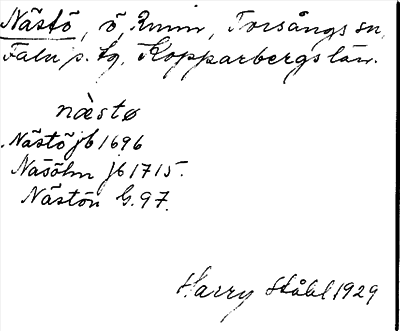 Nästö, ö, Runn, Torsångs sn,
Falu s. tg, Kopparbergs län.
nàstø
Nästö jb 1696
Näsöhn jb 1715.
Nästön G.97.
Harry Ståhl 1929